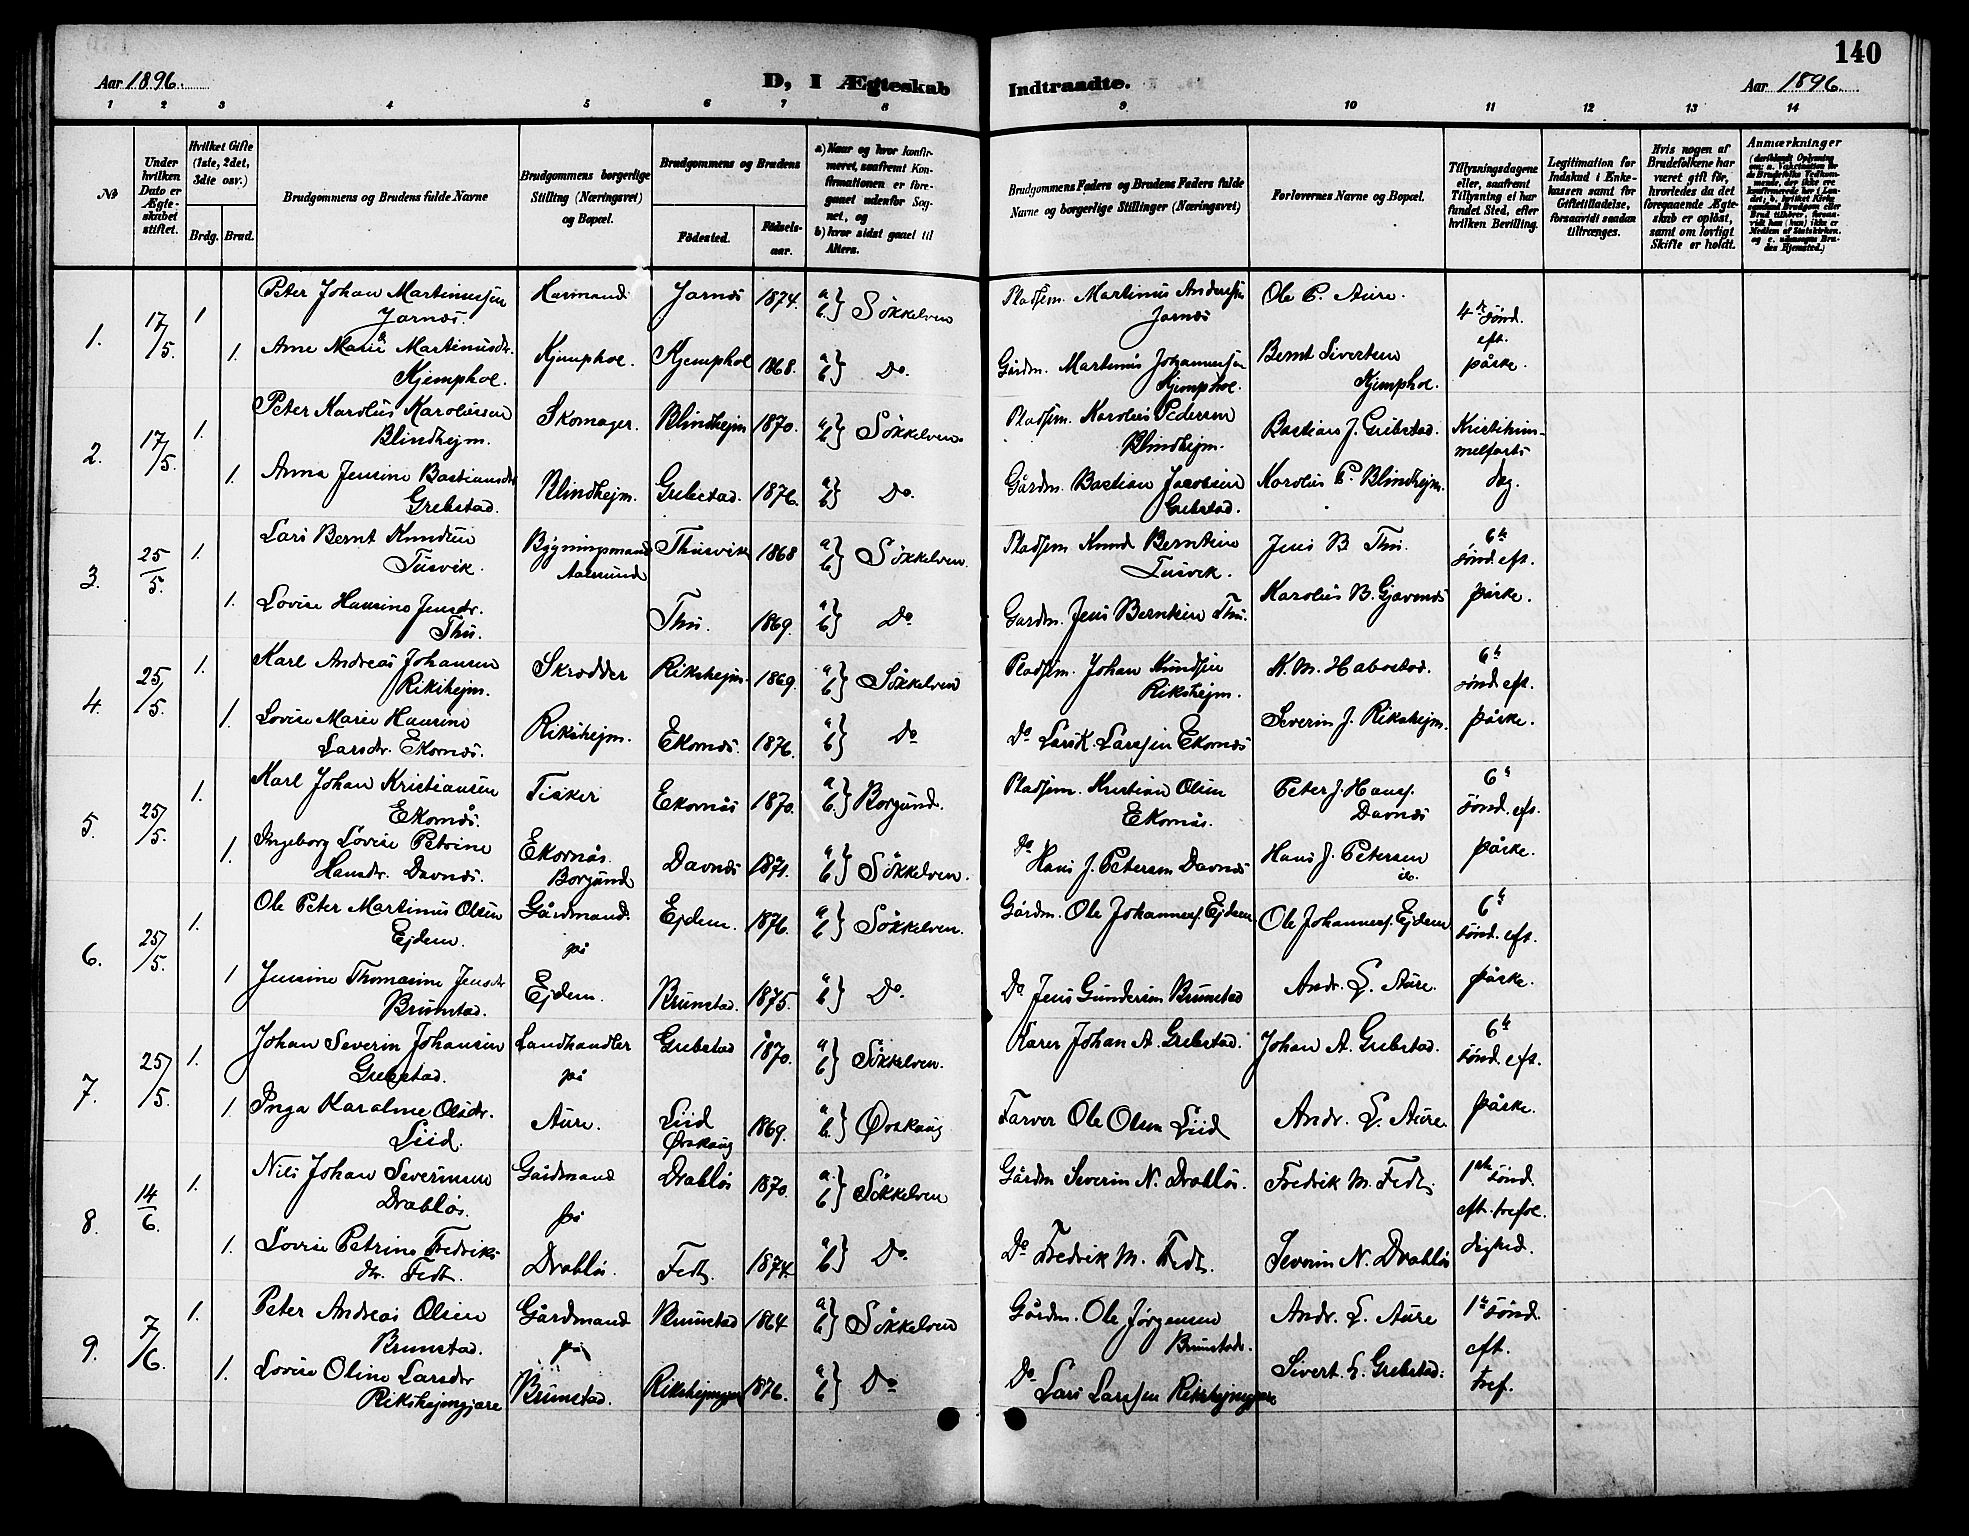 140
Aar 1896.
D, I Ægteskab
Indtraadte.
Aar 1896.
1 2 3 4 5 6 7 8 9 10 11 12 13 14
No
Under hvilken Dato er Ægteskabet stiftet.
Hvilket Gifte (1ste, 2det, 3die osv.)
Brdg. Brud.
Brudgommens og Brudens fulde Navne
Brudgommens borgerlige Stilling (Næringsvei) og Bopæl.
Brudgommens og Brudens
Födested.
Födselsaar.
a) Naar og hvor konfirmeret, saafremt Konfirmationen er foregaaet udenfor Sognet, og
b) hvor sidst gaaet til Alters.
Brudgommens Faders og Brudens Faders fulde Navne og borgerlige Stillinger (Næringsvei)
Forlovernes Navne og Bopæl.
Tillysningsdagene eller, saafremt Tillysning ei har fundet Sted, efter hvilken Bevilling.
Legitimation for Indskud i Enkekassen samt for Giftetilladelse, forsaavidt saadan tiltrænges.
Hvis nogen af Brudefolkene har været gift för, hvorledes da det foregaaende Ægteskab er oplöst, samt om lovligt Skifte er holdt.
Anmærkninger
1. 17/5. 1 Peter Johan Martinussen Jarnes. Harmand Jarnes 1874. a b} Søkkelven Pladsem. Martinus Anderssen Jarnes Ole P. Aure. 4de sønd. eft. påske.
1. Ane Marie Martinusdr. Kjemphol. Kjemphol. Kjemphol 1868. a b} Do. Gårdm. Martinus Johannessen Kjemphol. Bernt Sivertsen Kjemphol.
2. 17/5. 1. Peter Karolus Karolussen Blindhejm. Skomager. Blindhejm 1870. a b} Søkkelven. Pladsem. Karolus Pedersen Blindhejm. Bastian J. Grebstad. Kristihimmelfarts dag.
1. Anna Jensine Bastiansdr Grebstad. Blindhejm. Grebstad. 1876. a b} Do. Gårdm. Bastian Jacobsen Grebstad. Karolus P. Blindhejm.
3. 25/5. 1. Lars Bernt Knudsen Tusvik. Bygningsmand Aalesund Thusvik 1868 a b} Søkkelven. Pladsem Knud Berntsen Tusvik. Jens B Thu. 6te sønd. eft. påske.
1. Lovise Hansine Jensdr. Thu. Thu. 1869. a b} Do Gardm. Jens Berntsen Thu. Karolus B. Gjævenes
4. 25/5. 1. Karl Andreas Johansen Rikshejm. Skrædder Rikshejm. 1869. a b} Søkkelven Pladsem. Johan Knudsen Rikshejm. K. M. Habostad. 6te sønd. eft. påske.
1. Lovise Marie Hansine Larsdr. Ekornes. Rikshejm. Ekornes. 1876. a b} Do Do Lars K. Larssen Ekornes Severin J. Rikshejm.
5. 25/5. 1. Karl Johan Kristiansen Ekornes. Fisker Ekornes 1870. a b.} Borgund. Pladsem. Kristian Olsen Ekornes. Peter J. Hanss. Davnes 6te sønd. eft. påske.
1. Ingeborg Lovise Petrine Hansdr. Davnes. Ekornes. Borgund Davnes 1871. a b} Søkkelven. Do Hans J. Petersen Davnes Hans J. Petersen ib.
6. 25/5. 1. Ole Peter Martinus Olsen Ejdem. Gårdmand. på Ejdem. 1876. a b} Søkkelven. Gårdm. Ole Johanness. Ejdem Ole Johanness. Ejdem 6te sønd. eft. påske.
1 Jensine Thomasine Jensdr Brunstad. Ejdem. Brunstad. 1875. a b} Do. Do Jens Gundersen Brunstad Andr. L. Aure.
7. 25/5. 1. Johan Severin Johansen Grebstad. Landhandler på Grebstad 1870. a b} Søkkelven. Johan A. Grebstad. Johan A. Grebstad. 6te sønd. eft. påske.
1. Inga Karoline Olsdr. Liid. Aure. Liid Ørskoug 1869. a b.} Ørskoug Farver Ole Olsen Liid Andr. L. Aure
8. 14/6. 1. Nils Johan Severinsen Drabløs. Gårdmand på Drabløs 1870. a. b} Søkkelven Gårdm Severin N. Drabløs. Fredrik M. Fedt. 1ste sønd. eft. trefoldighed.
1. Lovise Petrine Fredriksdtr. Fedt. Drabløs. Fedt. 1874. a b} Do. Do Fredrik M. Fedt. Severin N. Drabløs
9. 7/6. 1. Peter Andreas Olsen Brunstad. Gårdmand på Brunstad 1864 a b} Søkkelven Gårdm. Ole Jørgensen Brunstad. Andr. L. Aure 1ste sønd. eft. tref.
1. Lovise Oline Larsdr Rikshejmgjære Brunstad. Rikshejmgjære 1876. a b} Do Do Lars Larssen Rikshejmgjære Sivert L. Grebstad.